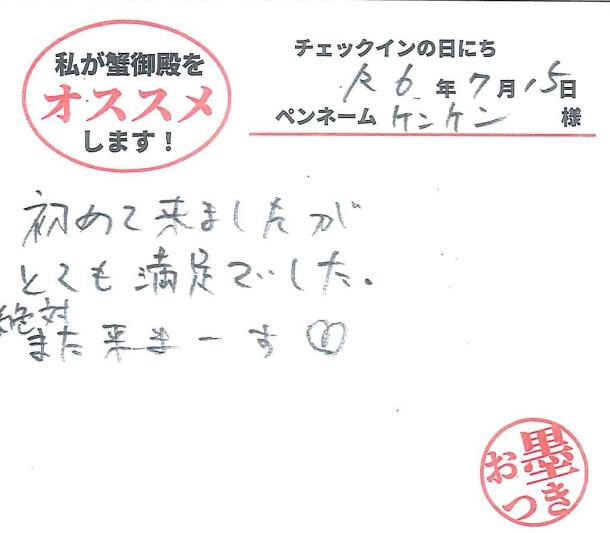 私が蟹御殿を
オススメ
します！
チェックインの日にち
R6年7月15日
ペンネーム ケンケン 様
初めて来ましたが
とても満足でした。
絶対
また来まーす
お墨
つき